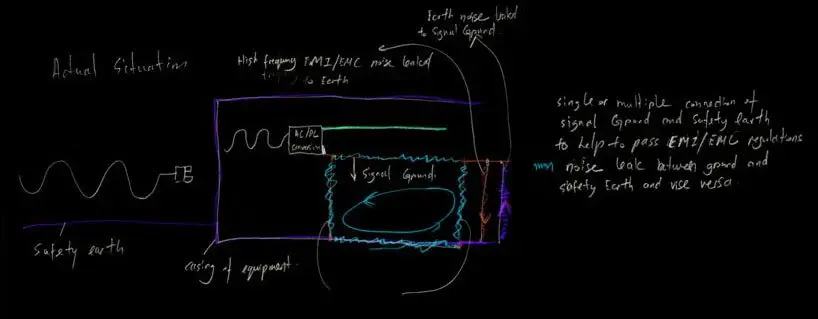 Actual Situation
Earth noise leaked
to Signal Ground.
High frequency EMI/EMC noise leaked
to Earth
AC/DC
conversion
Signal Ground.
Safety earth
casing of equipment.
single or multiple connection of
signal Ground and safety earth
to help to pass EMI/EMC regulations
noise leak between ground and
safety Earth and vise versa.